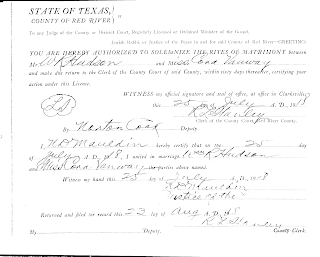 STATE OF TEXAS,
COUNTY OF RED RIVER
To any Judge of the County or District Court, Regularly Licensed or Ordained Minister of the Gospel,
Jewish Rabbi or Justice of the Peace in and for said County of Red River—GREETING:
YOU ARE HEREBY AUTHORIZED TO SOLEMNIZE THE RITES OF MATRIMONY between
Mr W R Hudson and Miss Cora Vanway
and make due return to the Clerk of the County Court of said County, within sixty days thereafter, certifying your
action under this License.
WITNESS my official signature and seal of office, at office in Clarksville
this 25 day July A. D. 1918
R L Stanley
Clerk of the County Court, Red River County.
By Norton Cook Deputy.
I, N D Mauldin hereby certify that on the 25 day
July A. D. 18, I united in marriage W R Hudson
and Miss Cora Vanway the parties above named.
Witness my hand this 25 day of July A. D. 18
N D Mauldin
Justice of the
Returned and filed for record this 23 day Aug A. D. 18
R L Stanley
By Deputy. County Clerk.